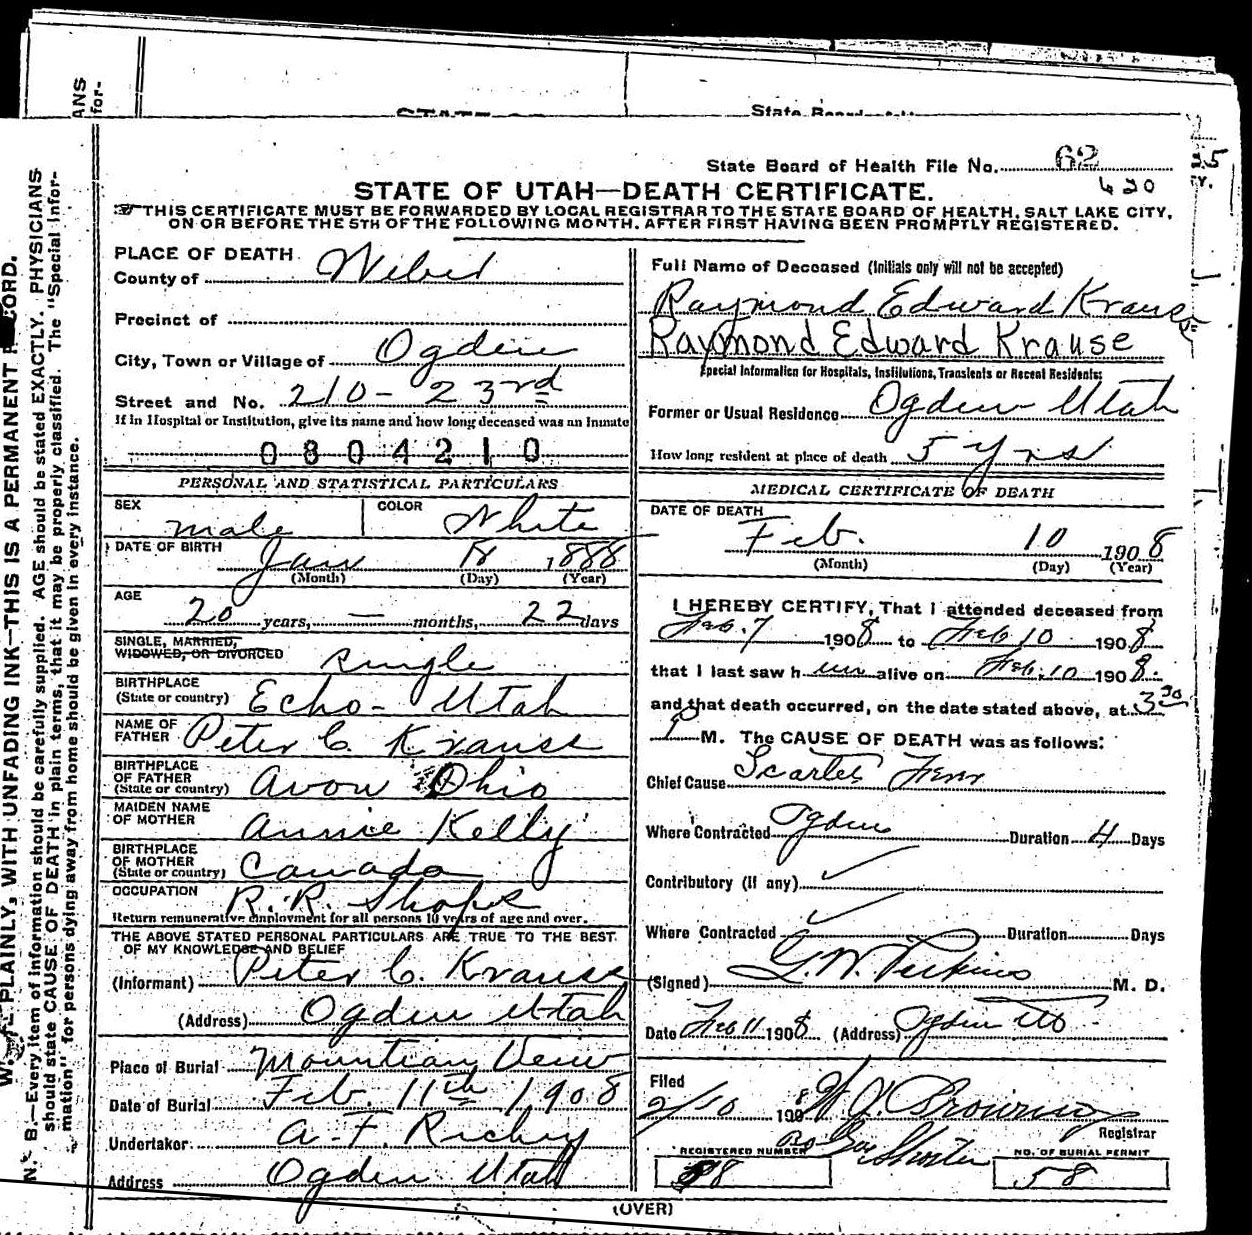 ANS
for-
STATE
State Board
25
TY.
State Board of Health File No. 62
420
STATE OF UTAH—DEATH CERTIFICATE.
THIS CERTIFICATE MUST BE FORWARDED BY LOCAL REGISTRAR TO THE STATE BOARD OF HEALTH, SALT LAKE CITY,
ON OR BEFORE THE 5TH OF THE FOLLOWING MONTH, AFTER FIRST HAVING BEEN PROMPTLY REGISTERED.
PLAINLY, WITH UNFADING INK—THIS IS A PERMANENT
N. B.—Every item of information should be carefully supplied. AGE should be stated EXACTLY. PHYSICIANS
should state CAUSE OF DEATH in plain terms, that it may be properly classified. The "Special Infor-
mation" for persons dying away from home should be given in every instance.
PLACE OF DEATH
County of Weber
Precinct of
City, Town or Village of Ogden
Street and No. 210 - 23rd
If in Hospital or Institution, give its name and how long deceased was an inmate
0804210
PERSONAL AND STATISTICAL PARTICULARS
SEX male
COLOR White
DATE OF BIRTH Jan 18 1888
(Month) (Day) (Year)
AGE
20 years, — months, 22 days
SINGLE, MARRIED,
WIDOWED, OR DIVORCED single
BIRTHPLACE
(State or country) Echo - Utah
NAME OF
FATHER Peter C. Krause
BIRTHPLACE
OF FATHER
(State or country) Avon Ohio
MAIDEN NAME
OF MOTHER Annie Kelly
BIRTHPLACE
OF MOTHER
(State or country) Canada
OCCUPATION R. R. Shops
Return remunerative employment for all persons 10 years of age and over.
THE ABOVE STATED PERSONAL PARTICULARS ARE TRUE TO THE BEST
OF MY KNOWLEDGE AND BELIEF
(Informant) Peter C. Krause
(Address) Ogden Utah
Place of Burial Mountian Veiw
Date of Burial Feb. 11th 1908
Undertaker A. F. Richey
Address Ogden Utah
Full Name of Deceased (Initials only will not be accepted)
Raymond Edward Krause
Raymond Edward Krause
Special Information for Hospitals, Institutions, Transients or Recent Residents:
Former or Usual Residence Ogden Utah
How long resident at place of death 5 yrs
MEDICAL CERTIFICATE OF DEATH
DATE OF DEATH
Feb. 10 1908
(Month) (Day) (Year)
I HEREBY CERTIFY, That I attended deceased from
Feb. 7 1908 to Feb 10 1908
that I last saw him alive on Feb. 10 1908.
and that death occurred, on the date stated above, at 3 30
P M. The CAUSE OF DEATH was as follows:
Chief Cause Scarlet Fever
Where Contracted Ogden Duration 4 Days
Contributory (if any) ✓
Where Contracted ✓ Duration Days
(Signed) G. W. Perkins M. D.
Date Feb 11 1908 (Address) Ogden
Filed
2/10 1908 Browning
Registrar
REGISTERED NUMBER
NO. OF BURIAL PERMIT
58
(OVER)